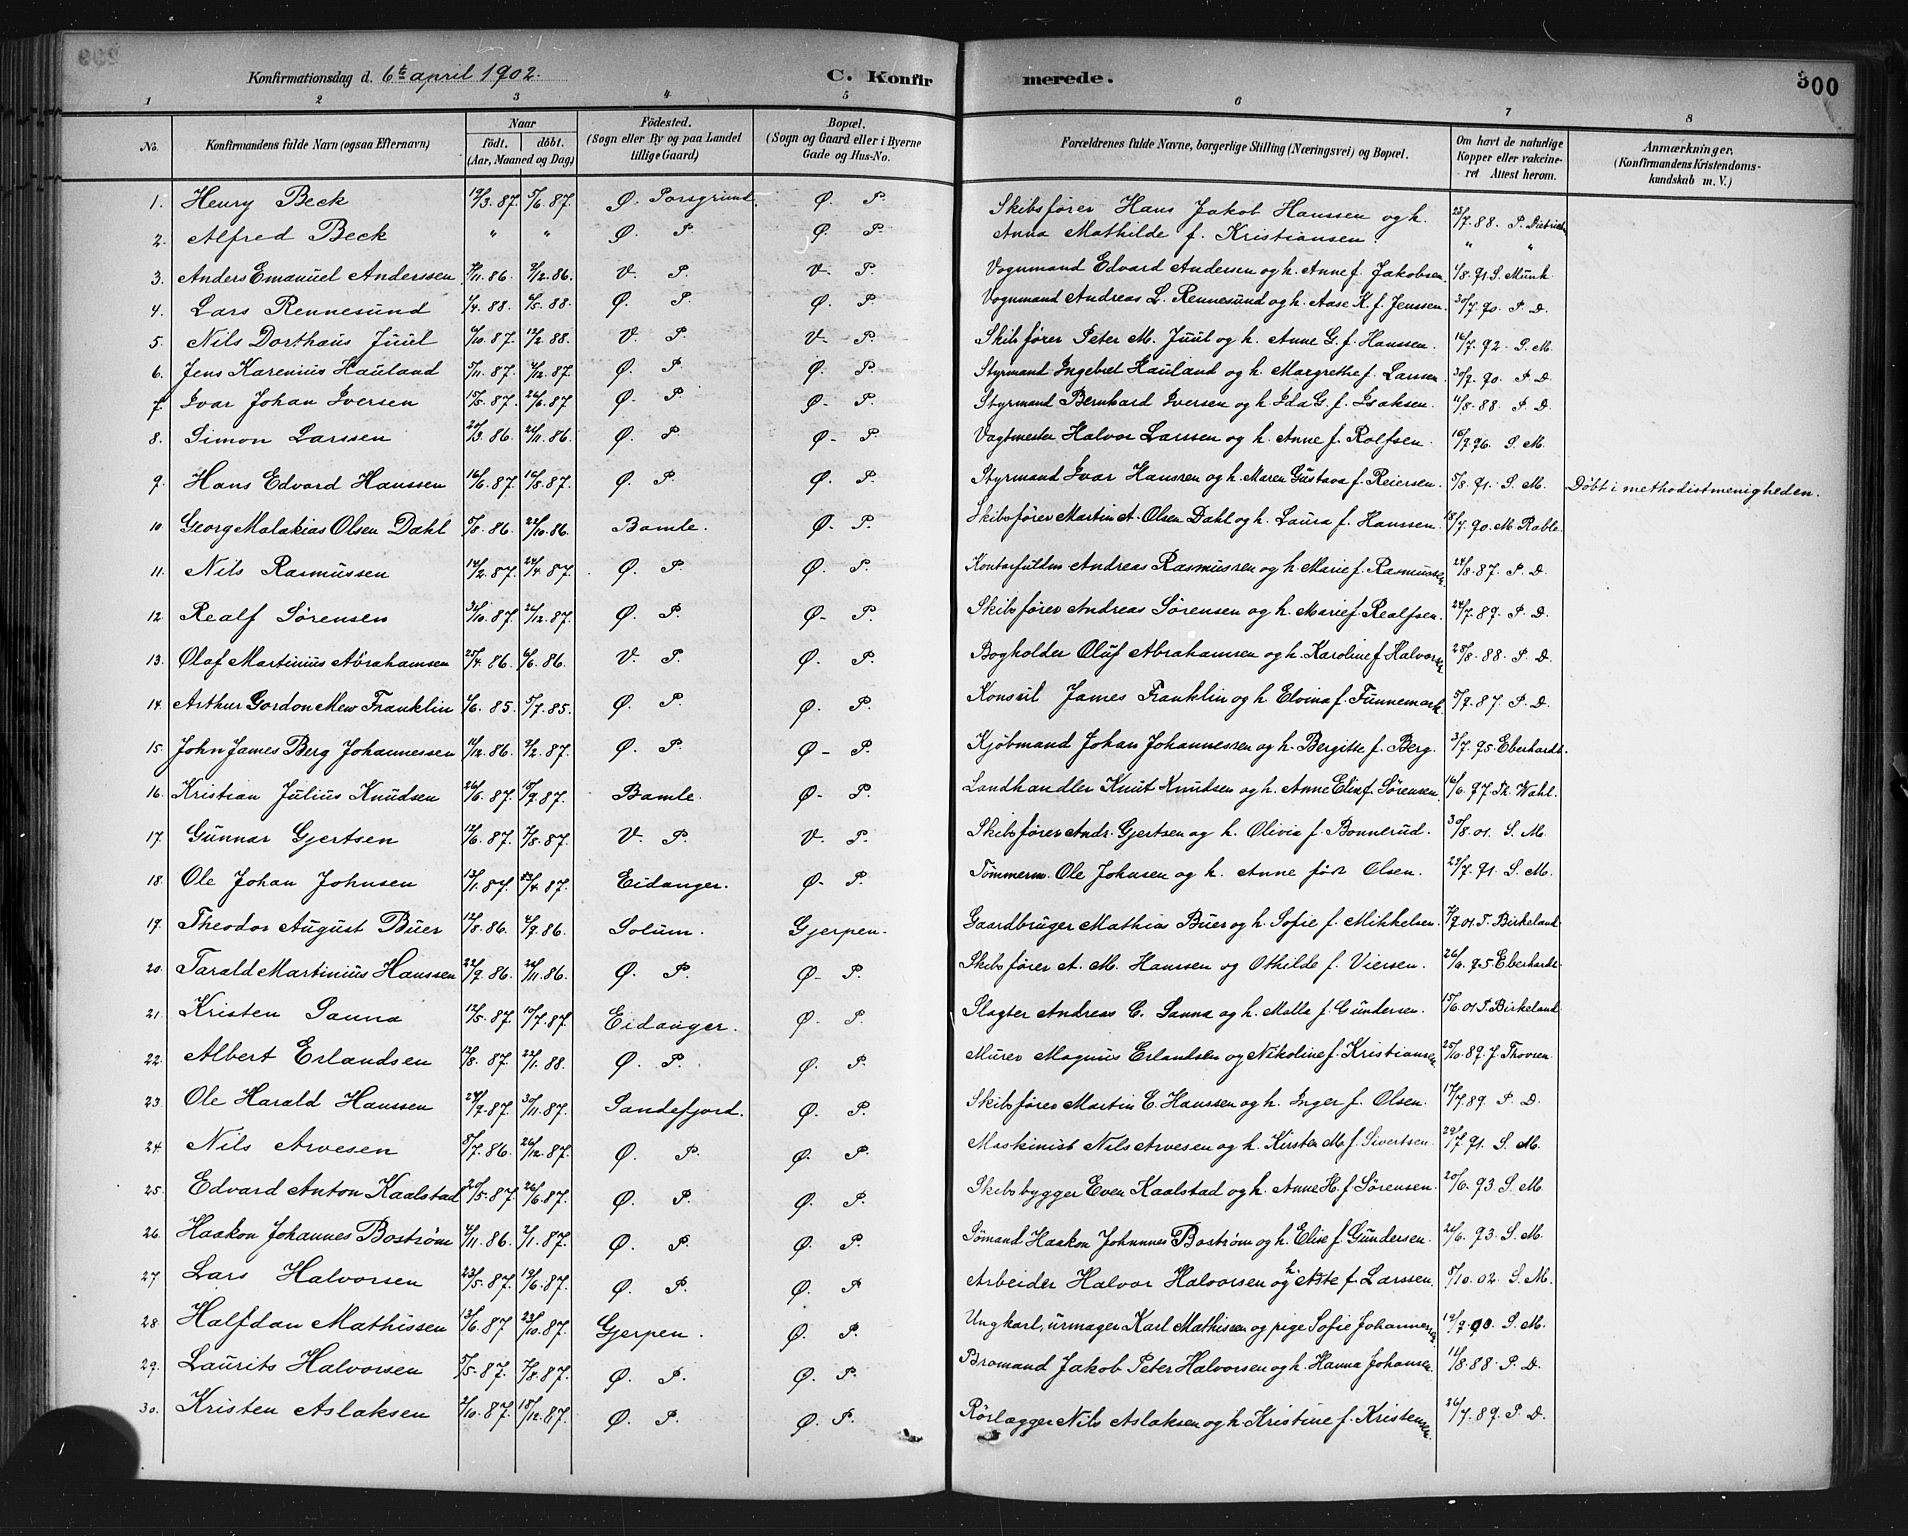 Konfirmationsdag d. 6te april 1902. C. Konfirmerede. 300
1 2 3 4 5 6 7 8
No. Konfirmandens fulde Navn (ogsaa Efternavn) Naar født. døbt. (Aar, Maaned og Dag) Fødested. (Sogn eller By og paa Landet tillige Gaard) Bopæl. (Sogn og Gaard eller i Byerne Gade og Hus-No. Forældrenes fulde Navne, borgerlige Stilling (Næringsvei) og Bopæl. Om havt de naturlige Kopper eller vakcineret Attest herom. Anmærkninger. (Konfirmandens Kristendomskundskab m. V.)
1. Henry Beck 19/3.87. 5/6.87. Ø. Porsgrund. Ø. P. Skibsfører Hans Jakob Hanssen og h. 25/7.88. P. Dietrichs
2. Alfred Beck " " Ø. P. Ø. P. Anna Mathilde f. Kristiansen. " "
3. Anders Emanuel Anderssen /11.86. /12.86. V. P. V- P. Vognmand Edvard Andersen og h. Anne f. Jakobsen. /8.91. S. Munk
4. Lars Rennesund /4.88. /5.88. Ø. P. Ø. P. Vognmand Andreas L. Rennesund og h. Aase K. f. Jenssen. 30/7.90. P. D.
5. Nils Dorthaus Juul /10.87. 12/2.88. V. P. V- P. Skibsfører Peter M. Juul og h. Anne G. f. Hanssen. 16/7.92. S. M.
6. Jens Karenius Hauland /11.87. /12.87. Ø. P. Ø. P. Styrmand Ingebret Hauland og h. Margrethe f. Larsen. 30/7.90. P. D.
7. Ivar Johan Iversen 15/5.87. 26/6.87 Ø- P. Ø- P. Styrmand Bernhard Iversen og h. Ida G. f. Isaksen. 11/8.88. P. D.
8. Simon Larssen 20/3.86. 21/11.86. Ø. P. Ø- P. Vagtmester Halvor Larssen og h. Anne f. Rolfsen. 16/9.96. S. M.
9. Hans Edvard Hanssen 16/6.87. 16/8.87. Ø. P. Ø. P. Styrmand Ivar Hanssen og h. Maren Gustava f. Reiersen. 5/8.91. S. M. Døbt i methodistmenigheden.
10. Georg Malakias Olsen Dahl 5/8.86. 22/10.86. Bamle. Ø. P. Skibsfører Martin A. Olsen Dahl og h. Laura f. Hanssen. 18/7.90. M. Rable
11. Nils Rasmussen 14/2.87. 24/4.87. Ø. P. Ø. P. Kontorfuldm Andreas Rasmussen og h. Marie f. Rasmussen. 24/8.87. P. D.
12. Realf Sørensen 31/10.87. 26/12.87. Ø. P. Ø- P. Skibsfører Andreas Sørensen og h. Marie f. Realfsen. 24/7.89. P. D.
13. Olaf Martinius Abrahamsen 25/4.86. 6/6.86. V. P. Ø. P. Bogholder Oluf Abrahamsen og h. Karoline f. Halvorsen 28/8.88. P. D.
14. Arthur Gordon Mew Franklin /6.85. 5/7.85. Ø. P. Ø. P. Konsul James Franklin og h. Elvina f. Funnemark. 5/9.87. P. D.
15. John James Berg Johannessen 11/12.86. /2.87. Ø. P. Ø- P. Kjøbmand Johan Johannessen og h. Bergitte f. Berg. 3/7.95. Eberhardt.
16. Kristian Julius Knudsen 26/6.87. 18/9.87. Bamle. Ø- P. Landhandler Knut Knutsen og h. Anne Elise f. Sørensen. 16/6.97. Th. Wahl.
17. Gunnar Gjertsen 12/6.87. 7/8.87. V. P. V. P. Skibsfører Andr. Gjertsen og h. Olivia f. Bonnerud. 30/8.01. S. M.
18. Ole Johan Johnsen 13/1.87. /4.87. Eidanger. Ø- P. Tømmerm. Ole Johnsen og h. Anne født Olsen. 29/7.91. S. M.
19. Theodor August Buer 12/8.86. /9.86. Solum. Gjerpen. Gaardbruger Mathias Buer og h. Sofie f. Mikkelsen. /9.01. T. Birkeland
20. Tarald Martinius Hanssen 22/9.86. 21/11.86. Ø. P. Ø- P. Skibsfører A. M. Hanssen og Othilde f. Viersen. 26/6.95. Eberhardt.
21. Kristen Sanna 12/5.87. 10/7.87. Eidanger. Ø. P. Slagter Andreas C. Sanna og h. Malla f. Gundersen. 15/6.01. T. Birkeland
22. Albert Erlandsen 12/8.87. 22/1.88. Ø. P. Ø. P. Murer Magnus Erlandsen og Nikoline f. Kristiansen 25/10.89. J. Thovsen
23. Ole Harald Hanssen 24/7.87. 30/11.87. Sandefjord. Ø. P. Skibsfører Martin E. Hanssen og h. Inger f. Olsen. 17/7.89. P. D.
24. Nils Arvesen 8/7.86. 26/12.87. Ø. P. Ø. P. Maskinist Nils Arvesen og h. Kirsten M. f. Sivertsen. 29/7.91. S. M.
25. Edvard Anton Kaalstad 20/5.87. 26/6.87. Ø. P. Ø. P. Skibsbygger Even Kaalstad og h. Anne H. f. Sørensen. 20/6.93. S. M.
26. Haakon Johannes Bostrøm /11.86. 2/1.87. Ø. P. Ø. P. Sømand Haakon Johannes Bostrøm og h. Elise f. Gundersen. 21/6.93. S. M.
27. Lars Halvorsen 23/5.87. 19/6.87. Ø. P. Ø. P Arbeider Halvor Halvorsen og h. Aste f. Larssen. 8/10.02. S. M.
28. Halfdan Mathissen 13/6.87 23/10.87. Gjerpen. Ø. P. Ungkarl, urmager Karl Mathissen og pige Sofie Johannessen 19/9.90. S. M.
29. Laurits Halvorsen 5/5.87. 7/8.87. Ø. P. Ø. P. Bromand Jakob Peter Halvorsen og h. Hanna Johansen. 11/8.88. P. D.
30. Kristen Aslaksen 2/10.87. 18/12.87. Ø. P. Ø. P. Rørlægger Nils Aslaksen og h. Kristine f. Kristensen. 26/7.89. P. D.